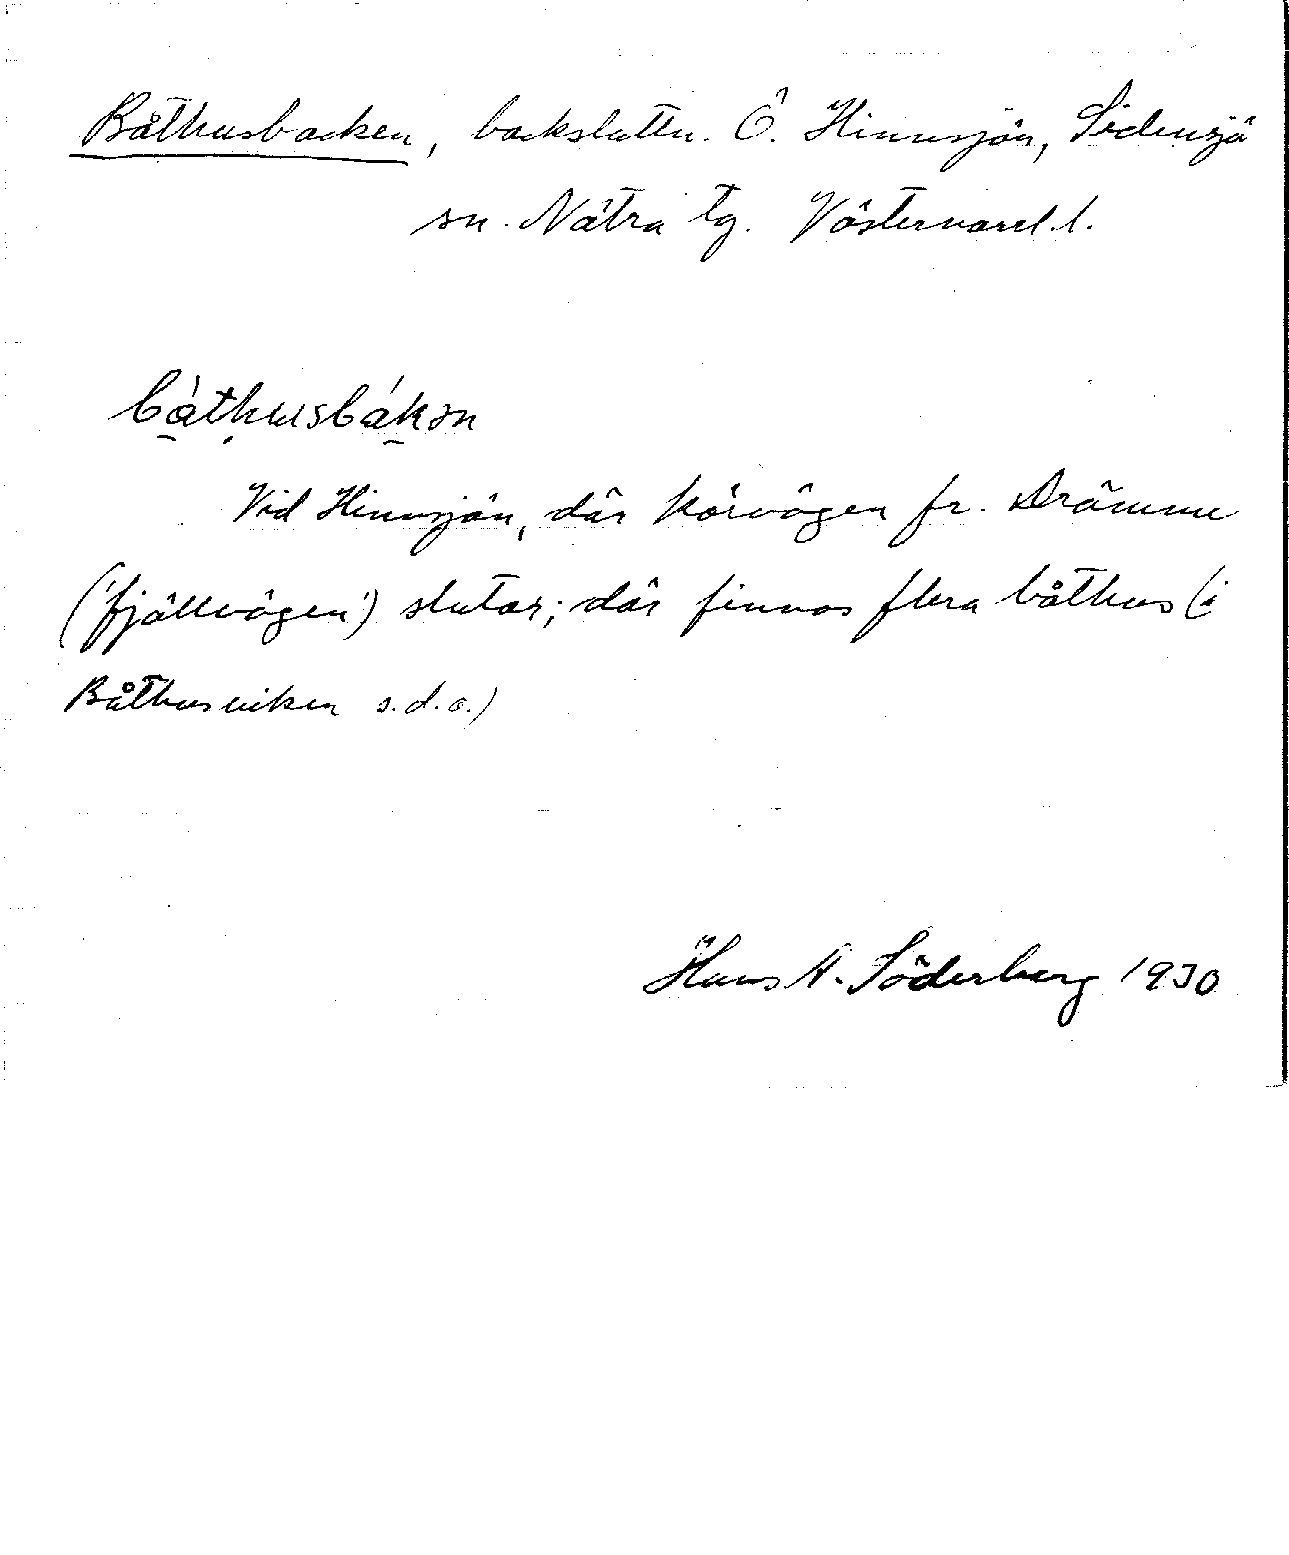 Båthusbacken, backsluttn. Ö. Hinnsjön, Sidensjö
sn. Nätra tg. Västernorrl. l.
bå̀thusbákən
Vid Hinnsjön, där körvägen fr. Drömme
('fjällvägen') slutar; där finnas flera båthus (i
Båthusviken s.d.o.)
Hans A. Söderberg 1930